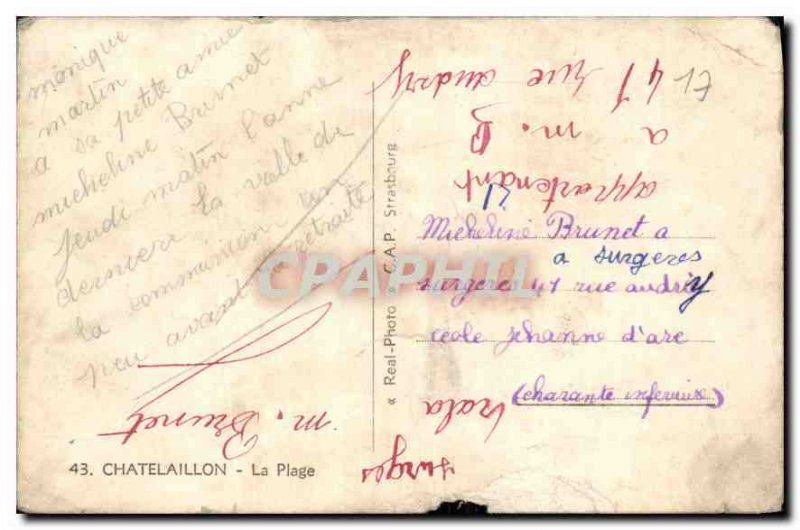 monique
martin
a sa petite amie
micheline Brunet
jeudi matin l'anne
derniere la valle de
la communion
peu avant retraite
m. Brunet
43. CHATELAILLON - La Plage
« Real-Photo » C.A.P. Strasbourg
17
41 rue audry
a m. B
appartenant
Micheline Brunet a
a surgeres
surgeres 41 rue audry
ecole jehanne d'arc
(charante inferieure)
surges
CPAPHIL